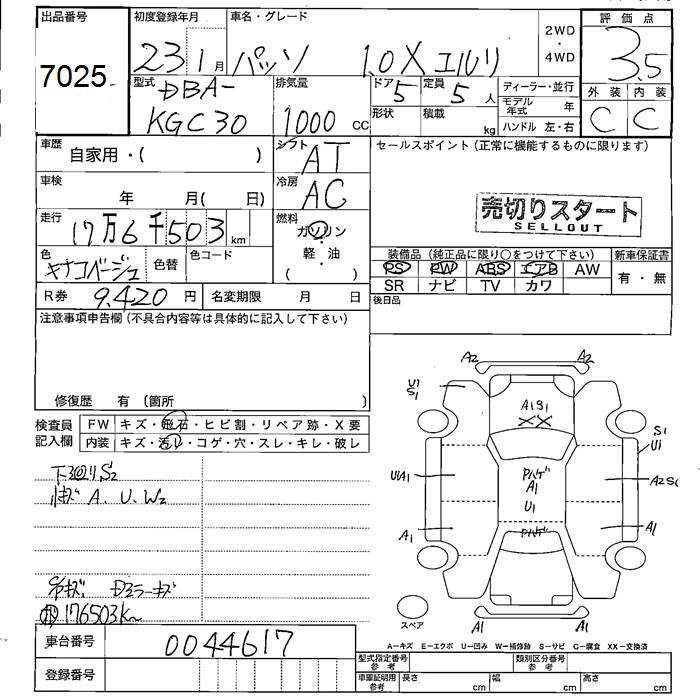 出品番号
7025
初度登録年月
23 1月
車名・グレード
パッソ 1.0X エルリ
2WD
・
4WD
評価点
3.5
型式
DBA-
KGC30
排気量
1000 CC
ドア
5
定員
5 人
形状
積載
kg
ディーラー・並行
モデル年式 年
ハンドル 左・右
外装
C
内装
C
車歴
自家用・( )
シフト
AT
セールスポイント(正常に機能するものに限ります)
売切りスタート
SELLOUT
車検
年 月( 日)
冷房
AC
走行
17万6千503km
燃料
ガソリン
軽・油
( )
色
キナコベージュ
色替
色コード
装備品(純正品に限り○をつけて下さい)
PS PW ABS エアB AW
SR ナビ TV カワ
新車保証書
有・無
R券 9,420円
名変期限 月 日
後日品
注意事項申告欄(不具合内容等は具体的に記入して下さい)
修復歴 有(箇所 )
検査員
記入欄
FW キズ・飛石・ヒビ割・リペア跡・X要
内装 キズ・汚レ・コゲ・穴・スレ・キレ・破レ
下廻りS2
A. U. W2
ミラーキズ
176503K
A2 A2
U1
S1
A1S1
XX
S1
U1
U1A1
Pハゲ
A1
U1
A2S1
A1
Pハゲ
A1
スペア
A1 A1
A−キズ E−エクボ U−凹み W−補修跡 S−サビ C−腐食 XX−交換済
車台番号
0044617
登録番号
型式指定番号
参考
類別区分番号
参考
車庫証明用
参考
長さ cm
幅 cm
高さ cm